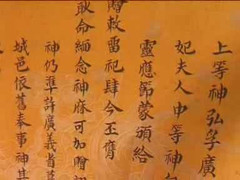 上等神弘孚廣
妃夫人中等神
靈應節蒙頒給
敕留祀肆今丕膺
耿命緬念神庥可加贈
神仍準許廣義省
城邑依舊奉事神其